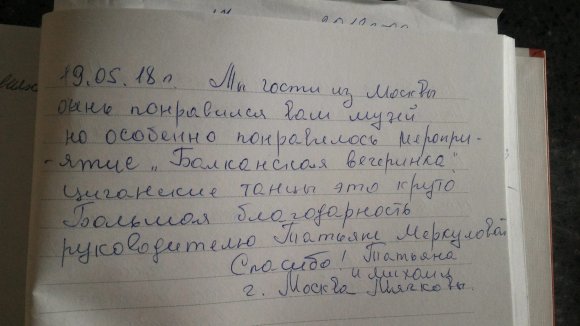 19.05.18г. Мы гости из Москвы
очень понравился вам музей
но особенно понравилось меропри-
-ятие „Балканская вечеринка"
цыганские танцы это круто
Большая благодарность
руководителю Татьяне Меркуловой
Спасибо! Татьяна
и Михаил
г. Москва Мячковы.